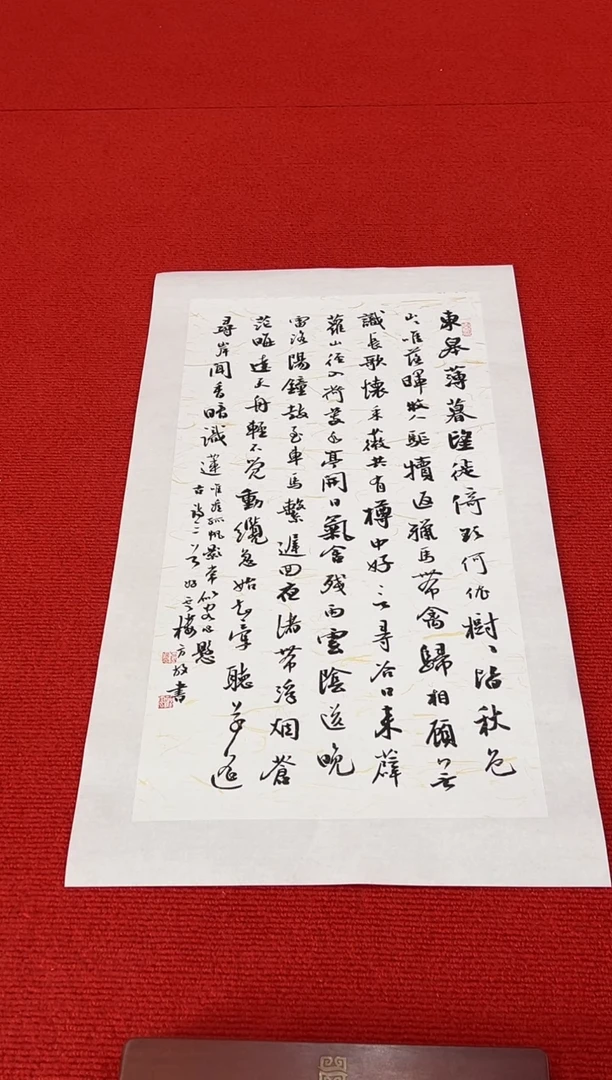 東皋薄暮望徙倚欲何依樹〻皆秋色
山〻唯落暉牧人驅犢返獵馬帶禽歸相顧無
識長歌懷采薇共有樽中好言尋谷口來薜
蘿山徑入荷芰水亭開日氣含殘雨雲陰送晚
雷洛陽鐘鼓至車馬繫遲回夜渚帶浮烟蒼
茫晦遠天舟輕不覺動纜急始知牽聽笛遙
尋岸聞香暗識蓮唯看孤帆影常似客心懸
古詩三首 樓方放書